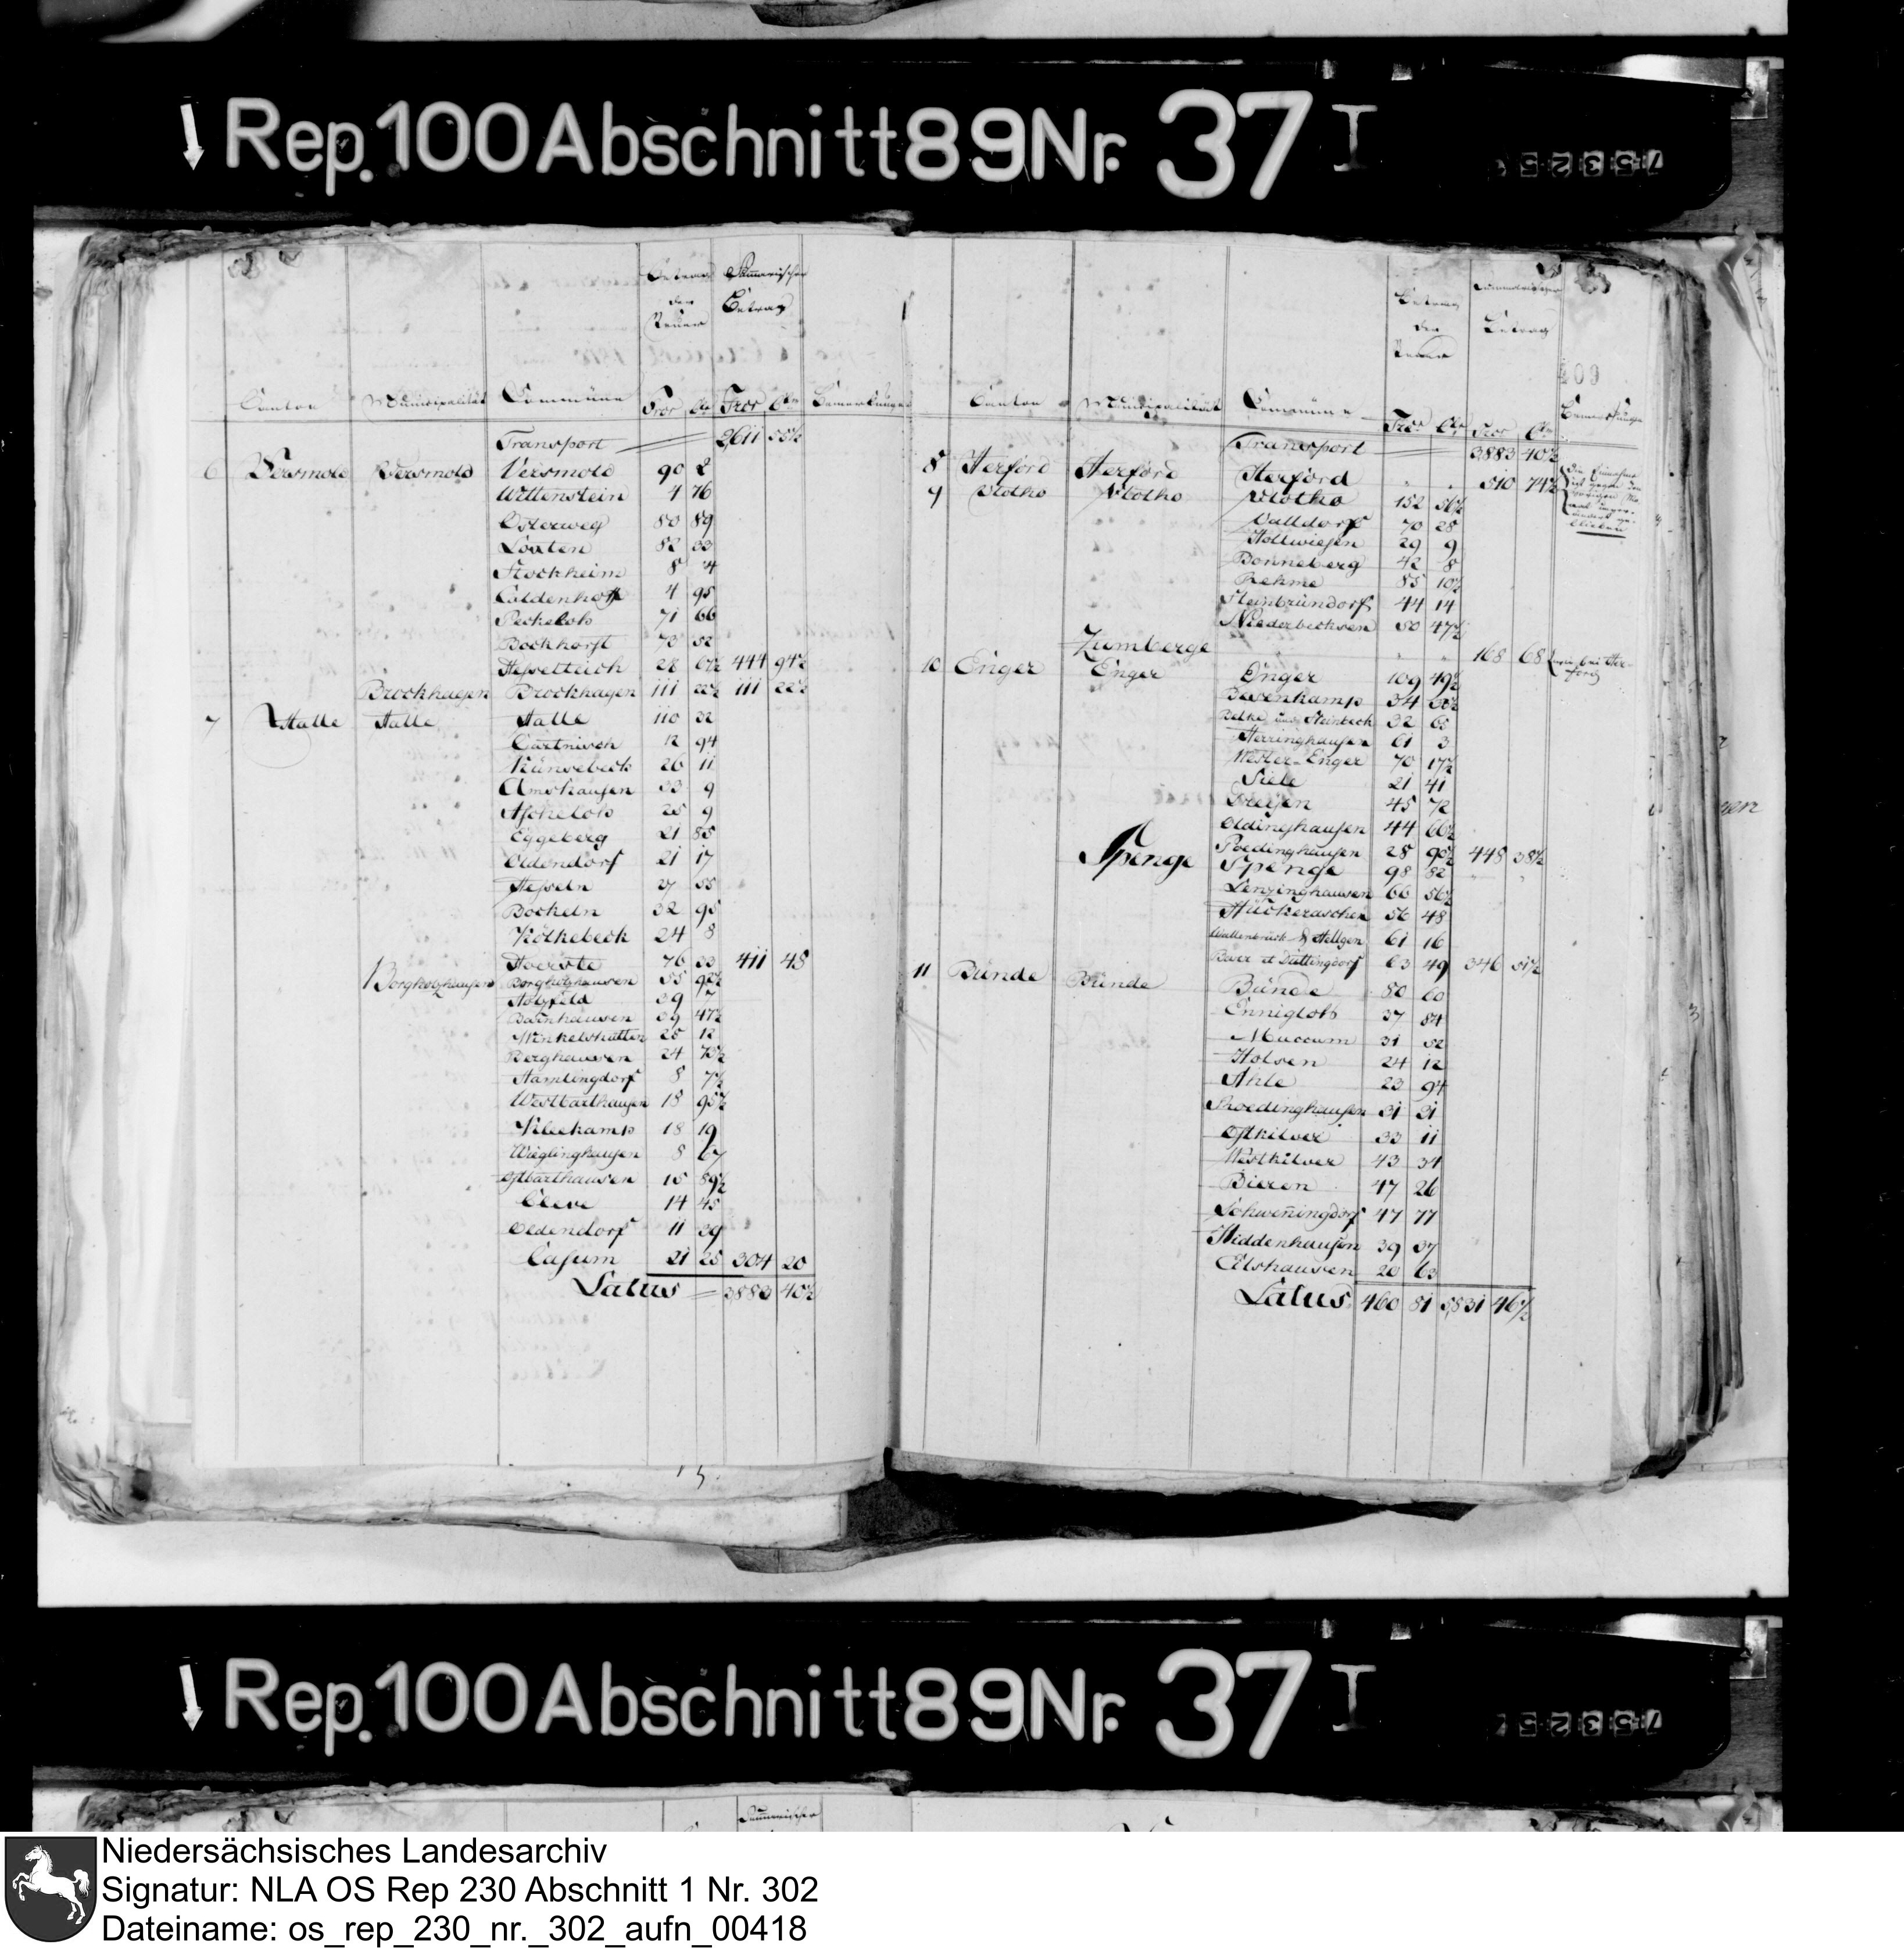 Rep. 100 Abschnitt 89 Nr. 37 I
75325
Betrag der Steuer Summarischer Betrag
Canton Municipalität Commüne Frcs Cts Frcs Cts Bemerkungen
Transport 2,611 55½
6 Versmold Versmold Versmold 90 2
Wittenstein 4 76
Osterweg 80 89
Loxten 82 33
Stockheim 8 4
Caldenhoff 4 95
Peckeloh 71 66
Bockhorst 73 52
Hesselteich 28 67½ 444 94½
Brockhagen Brockhagen 111 22½ 111 22½
7 Halle Halle Halle 110 32
Gartnisch 12 94
Künsebeck 26 11
Amshausen 33 9
Ascheloh 25 9
Eggeberg 21 85
Oldendorf 21 17
Hesseln 27 55
Bockeln 32 95
Kölkebeck 24 8
Hoerste 76 33 411 48
Borgholzhausen Borgholzhausen 55 92½
Holzfeld 39 7
Barnhausen 39 47½
Winkelshütten 28 12
Berghausen 24 73½
Hamlingdorf 8 7½
Westbarthausen 18 95½
Kleekamp 18 19
Wieglinghausen 8 67
Ostbarthausen 15 89½
Cleve 14 45
Oldendorf 11 39
Casum 21 25 304 20
Latus 3,883 40½
Betrag der Steuer Summarischer Betrag
409
Canton Municipalität Commüne Frcs Cts Frcs Cts Bemerkungen
Transport 3,883 40½
8 Herford Herford Herford " " 510 74½
die Einnahme ist gegen den vorigen Mo nat unver- ändert ge- blieben
9 Vlotho Vlotho Vlotho 152 56½
Valldorf 70 28
Hollwiesen 29 9
Bonneberg 42 8
Rehme 85 10½
Steinbründorf 44 14
Niederbecksen 50 47½
Zumberge " " 168 68 wie bei Her- ford
10 Enger Enger Enger 109 49½
Besenkamp 34 30½
Belke und Steinbeck 32 65
Herringhausen 61 3
Wester-Enger 70 17½
Siele 21 41
Dreyen 45 72
Oldinghausen 44 66½
Poedinghausen 28 93½ 448 38½
Spenge Spenge 98 82 " "
Lenzinghausen 66 56½
Hückeraschen 56 48
Wallenbrück & Hellgen 61 16
Baer et Düttingdorf 63 49 346 51½
11 Bünde Bünde Bünde 80 60
Ennigloh 37 84
Muccum 31 52
Holsen 24 12
Ahle 23 94
Roedinghausen 31 21
Ostkilver 33 11
Westkilver 43 34
Bieren 47 26
Schweñingdorf 47 77
Hiddenhausen 39 37
Eilshausen 20 63
Latus 460 81 5,831 46½
Rep. 100 Abschnitt 89 Nr. 37 I
75325
Summarischer
Niedersächsisches Landesarchiv
Signatur: NLA OS Rep 230 Abschnitt 1 Nr. 302
Dateiname: os_rep_230_nr._302_aufn_00418